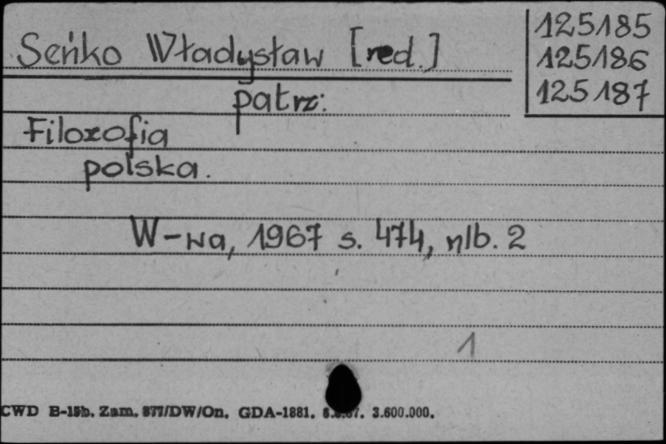 Seńko Władysław [red.]
125185
125186
125187
patrz:
Filozofia
polska.
W-wa, 1967 s. 474, nlb. 2
1
CWD B-15b. Zam. 877/DW/On. GDA-1881. 3.600.000.